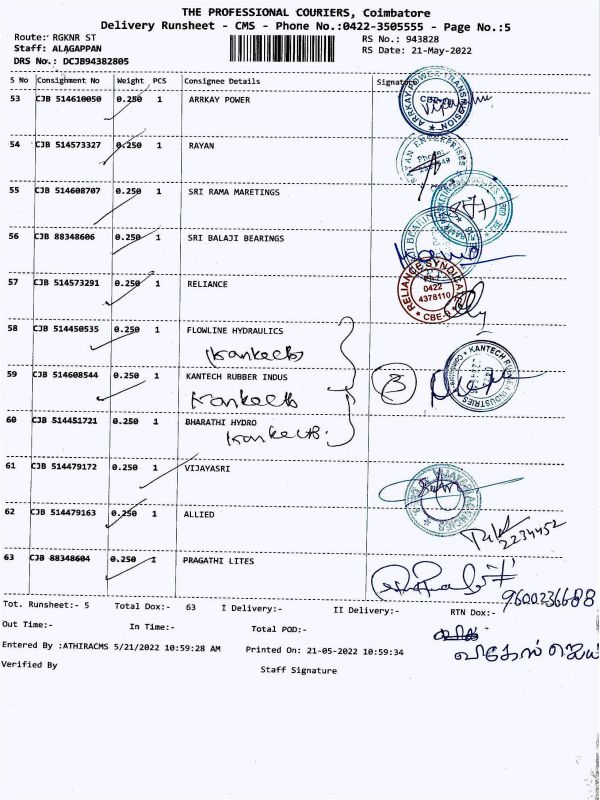 THE PROFESSIONAL COURIERS, Coimbatore
Delivery Runsheet - CMS - Phone No.:0422-3505555 - Page No.:5
Route: RGKNR ST
RS No.: 943828
Staff: ALAGAPPAN
RS Date: 21-May-2022
DRS No.: DCJB94382805
S No Consignment No Weight PCS Consignee Details Signature
53 CJB 514610050 0.250 1 ARRKAY POWER
54 CJB 514573327 0.250 1 RAYAN
55 CJB 514608707 0.250 1 SRI RAMA MARETINGS
56 CJB 88348606 0.250 1 SRI BALAJI BEARINGS
57 CJB 514573291 0.250 1 RELIANCE
RELIANCE SYNDICATE
0422
4378110
58 CJB 514450535 0.250 1 FLOWLINE HYDRAULICS
59 CJB 514608544 0.250 1 KANTECH RUBBER INDUS
3
KANTECH RUBBER INDUSTRIES
60 CJB 514451721 0.250 1 BHARATHI HYDRO
61 CJB 514479172 0.250 1 VIJAYASRI
62 CJB 514479163 0.250 1 ALLIED
2234452
63 CJB 88348604 0.250 1 PRAGATHI LITES
9600236688
Tot. Runsheet:- 5 Total Dox:- 63 I Delivery:- II Delivery:- RTN Dox:-
Out Time:- In Time:- Total POD:-
Entered By :ATHIRACMS 5/21/2022 10:59:28 AM Printed On: 21-05-2022 10:59:34
Verified By Staff Signature